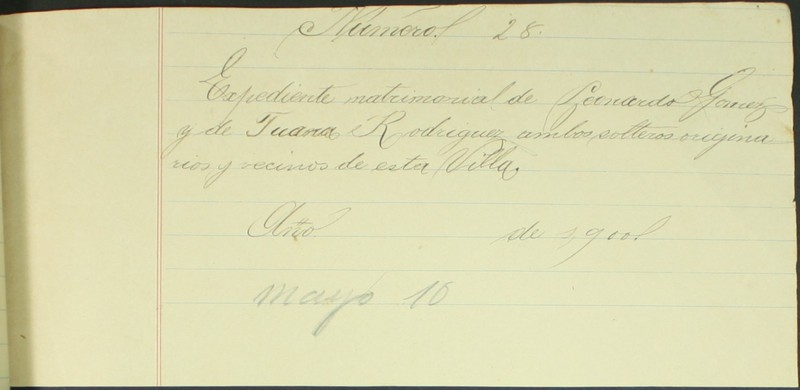 Número 28.
Expediente matrimonial de Leonardo Gomez
y de Juana Rodriguez ambos solteros origina
rios y vecinos de esta Villa.
Año de 1,900.
mayo 16